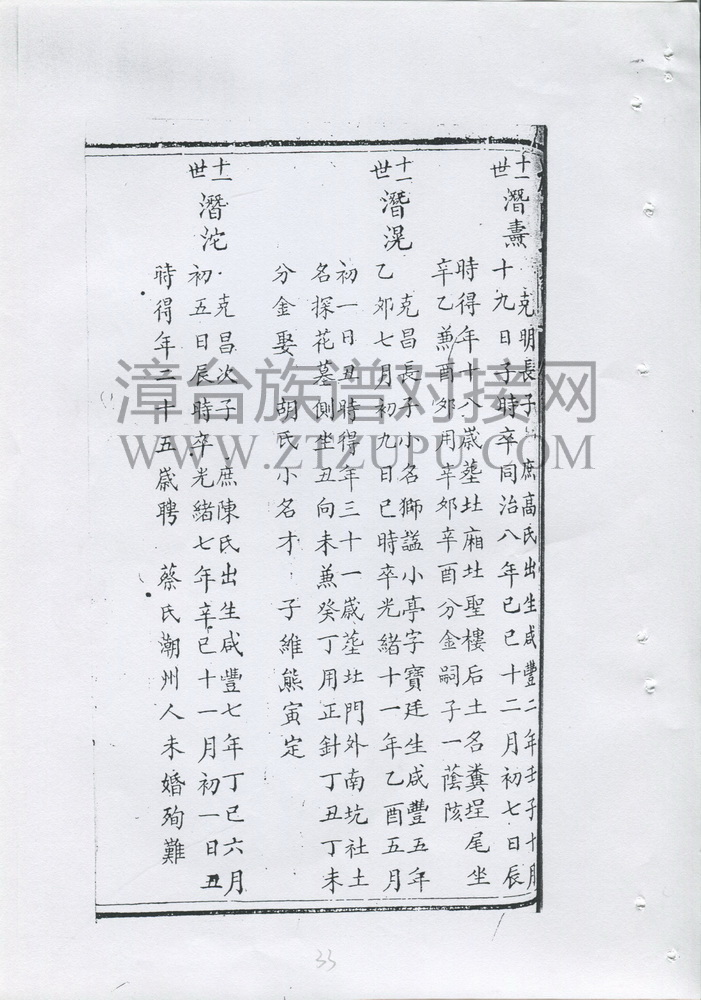 十一世
潛燾
克明長子 庶高氏出生咸豐二年壬子十月
十九日子時卒同治八年己巳十二月初七日辰
時得年十八歲塟址廂址聖樓后土名糞埕尾坐
辛乙兼酉卯用辛卯辛酉分金嗣子一蔭陔
十一世
潛滉
克昌長子小名獅謚小亭字寶廷生咸豐五年
乙卯七月初九日巳時卒光緒十一年乙酉五月
初一日丑時得年三十一歲塟址門外南坑社土
名探花墓側坐丑向未兼癸丁用正針丁丑丁未
分金娶 胡氏小名才 子維熊寅定
十一世
潛沱
克昌次子 庶陳氏出生咸豐七年丁巳六月
初五日辰時卒光緒七年辛巳十一月初一日丑
時得年二十五歲聘 蔡氏潮州人未婚殉難
漳台族谱对接网
WWW.ZTZUPU.COM
33